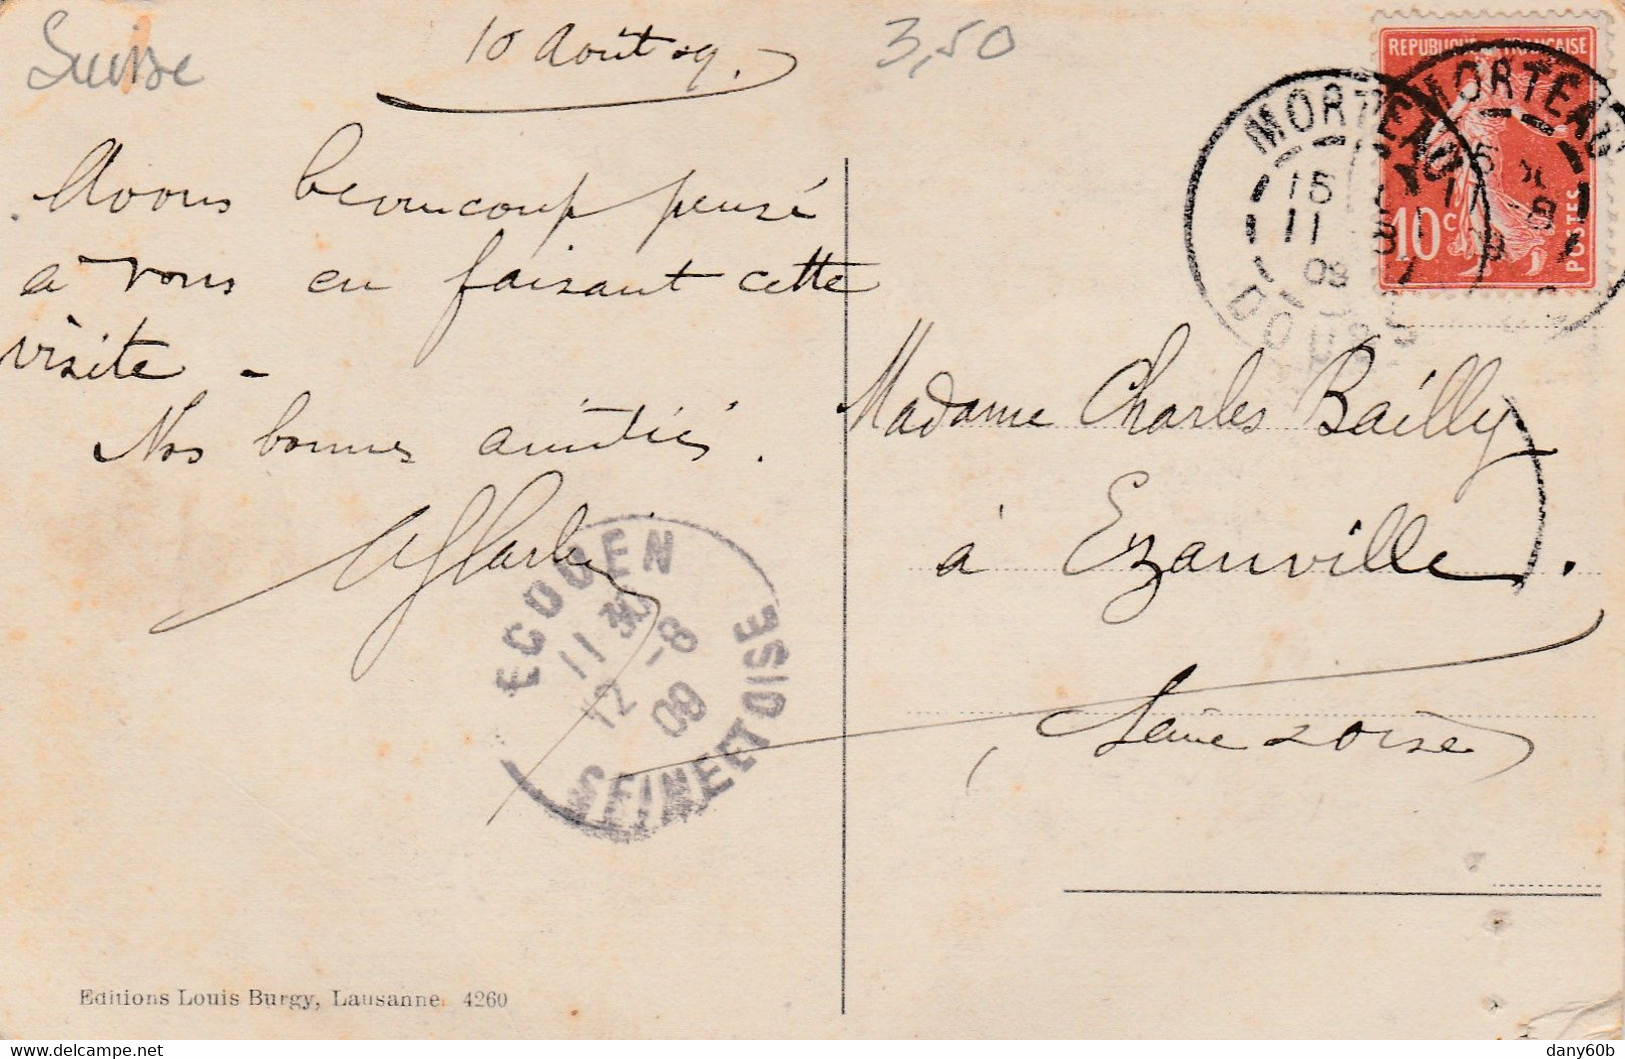 Suisse
10 Août 09.
3,50
REPUBLIQUE FRANÇAISE
10c
POSTES
MORTEAU
MORTEAU
15
11 8
09
DOUBS
Avons beaucoup pensé
à vous en faisant cette
visite -
Nos bonnes amitiés.
Madame Charles Bailly
à Ezanville.
Seine & Oise
ECOUEN
11 30
12 -8
09
SEINE ET OISE
Editions Louis Burgy, Lausanne. 4260
dany60b